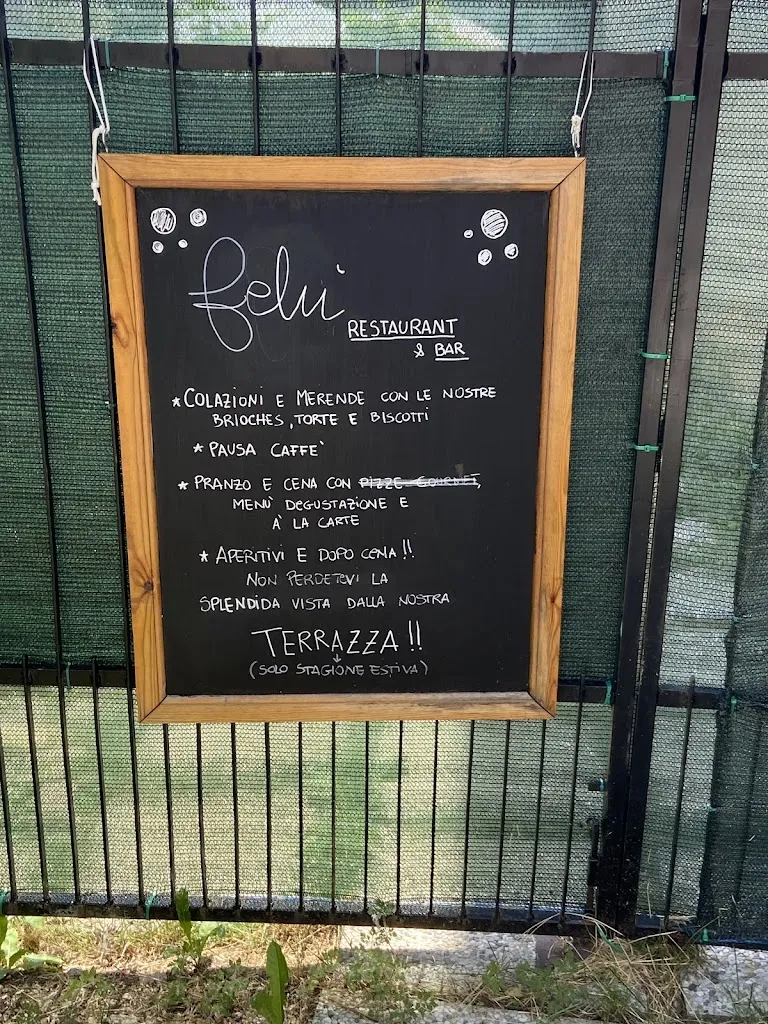 felù
RESTAURANT
& BAR
* COLAZIONI E MERENDE CON LE NOSTRE
BRIOCHES, TORTE E BISCOTTI
* PAUSA CAFFE'
* PRANZO E CENA CON PIZZE GOURMET,
MENÙ DEGUSTAZIONE E
À LA CARTE
* APERITIVI E DOPO CENA!!
NON PERDETEVI LA
SPLENDIDA VISTA DALLA NOSTRA
TERRAZZA!!
(SOLO STAGIONE ESTIVA)